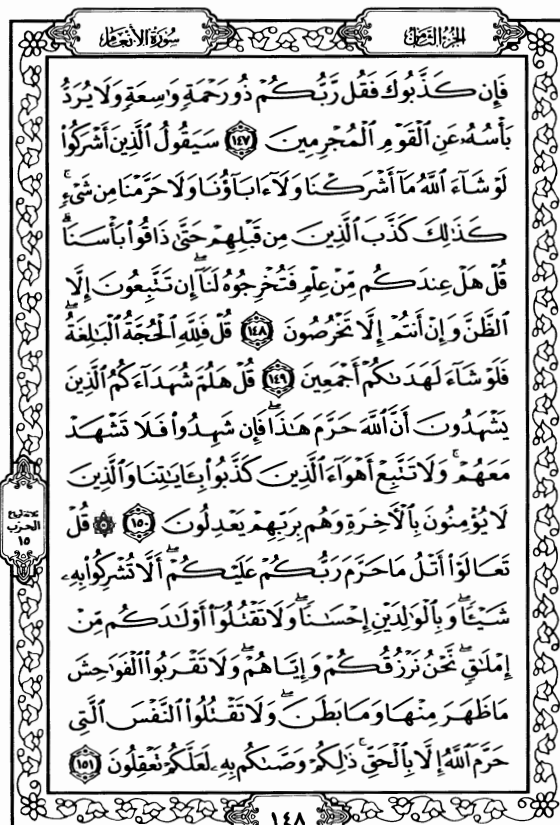 الجزء الثامن
سورة الأنعام
فَإِن كَذَّبُوكَ فَقُل رَّبُّكُمْ ذُو رَحْمَةٍ وَاسِعَةٍ وَلَا يُرَدُّ
بَأْسُهُۥ عَنِ الْقَوْمِ الْمُجْرِمِينَ ١٤٧ سَيَقُولُ الَّذِينَ أَشْرَكُوا۟
لَوْ شَآءَ اللَّهُ مَآ أَشْرَكْنَا وَلَآ ءَابَآؤُنَا وَلَا حَرَّمْنَا مِن شَىْءٍ ۚ
كَذَٰلِكَ كَذَّبَ الَّذِينَ مِن قَبْلِهِمْ حَتَّىٰ ذَاقُوا۟ بَأْسَنَا ۗ
قُلْ هَلْ عِندَكُم مِّنْ عِلْمٍ فَتُخْرِجُوهُ لَنَآ ۖ إِن تَتَّبِعُونَ إِلَّا
الظَّنَّ وَإِنْ أَنتُمْ إِلَّا تَخْرُصُونَ ١٤٨ قُلْ فَلِلَّهِ الْحُجَّةُ الْبَٰلِغَةُ ۖ
فَلَوْ شَآءَ لَهَدَىٰكُمْ أَجْمَعِينَ ١٤٩ قُلْ هَلُمَّ شُهَدَآءَكُمُ الَّذِينَ
يَشْهَدُونَ أَنَّ اللَّهَ حَرَّمَ هَٰذَا ۖ فَإِن شَهِدُوا۟ فَلَا تَشْهَدْ
مَعَهُمْ ۚ وَلَا تَتَّبِعْ أَهْوَآءَ الَّذِينَ كَذَّبُوا۟ بِـَٔايَٰتِنَا وَالَّذِينَ
لَا يُؤْمِنُونَ بِالْـَٔاخِرَةِ وَهُم بِرَبِّهِمْ يَعْدِلُونَ ١٥٠ ۞ قُلْ
تَعَالَوْا۟ أَتْلُ مَا حَرَّمَ رَبُّكُمْ عَلَيْكُمْ ۖ أَلَّا تُشْرِكُوا۟ بِهِۦ
شَيْـًٔا ۖ وَبِالْوَٰلِدَيْنِ إِحْسَٰنًا ۖ وَلَا تَقْتُلُوٓا۟ أَوْلَٰدَكُم مِّنْ
إِمْلَٰقٍ ۖ نَّحْنُ نَرْزُقُكُمْ وَإِيَّاهُمْ ۖ وَلَا تَقْرَبُوا۟ الْفَوَٰحِشَ
مَا ظَهَرَ مِنْهَا وَمَا بَطَنَ ۖ وَلَا تَقْتُلُوا۟ النَّفْسَ الَّتِى
حَرَّمَ اللَّهُ إِلَّا بِالْحَقِّ ۚ ذَٰلِكُمْ وَصَّىٰكُم بِهِۦ لَعَلَّكُمْ تَعْقِلُونَ ١٥١
ثلاثة أرباع
الحزب
١٥
١٤٨